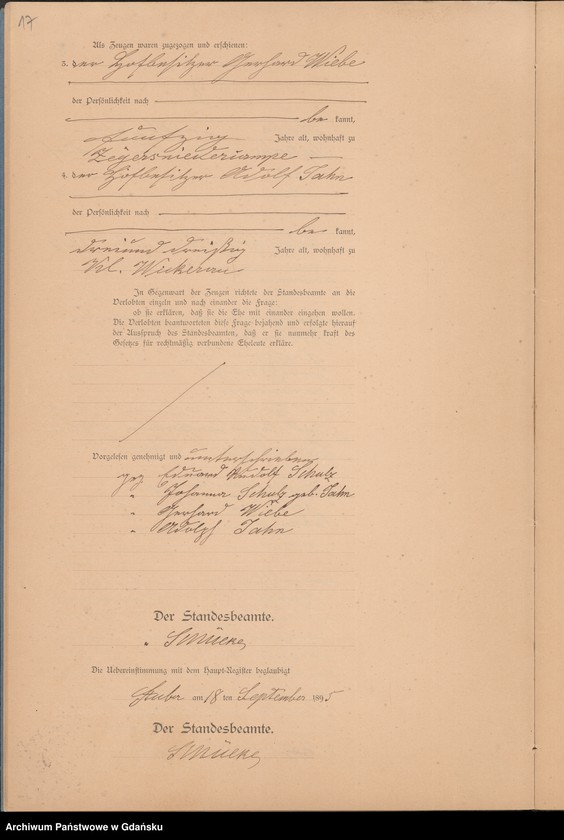 17
Als Zeugen waren zugezogen und erschienen:
3. der Hofbesitzer Gerhard Wiebe
der Persönlichkeit nach
be kannt,
fünfzig Jahre alt, wohnhaft zu
Zeyersniederkampe
4. der Hofbesitzer Adolf Jahn
der Persönlichkeit nach
be kannt,
dreiunddreißig Jahre alt, wohnhaft zu
Kl. Wickerau
In Gegenwart der Zeugen richtete der Standesbeamte an die
Verlobten einzeln und nach einander die Frage:
ob sie erklären, daß sie die Ehe mit einander eingehen wollen.
Die Verlobten beantworteten diese Frage bejahend und erfolgte hierauf
der Ausspruch des Standesbeamten, daß er sie nunmehr kraft des
Gesetzes für rechtmäßig verbundene Eheleute erkläre.
Vorgelesen genehmigt und unterschrieben
gez. Eduard Rudolf Schulz
" Johanna Schulz geb. Jahn
" Gerhard Wiebe
" Adolph Jahn
Der Standesbeamte.
"
Die Uebereinstimmung mit dem Haupt-Register beglaubigt
am 18 ten September 1895
Der Standesbeamte.
Archiwum Państwowe w Gdańsku